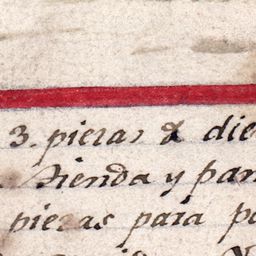 3. piezas d die
tienda y par
piezas para p